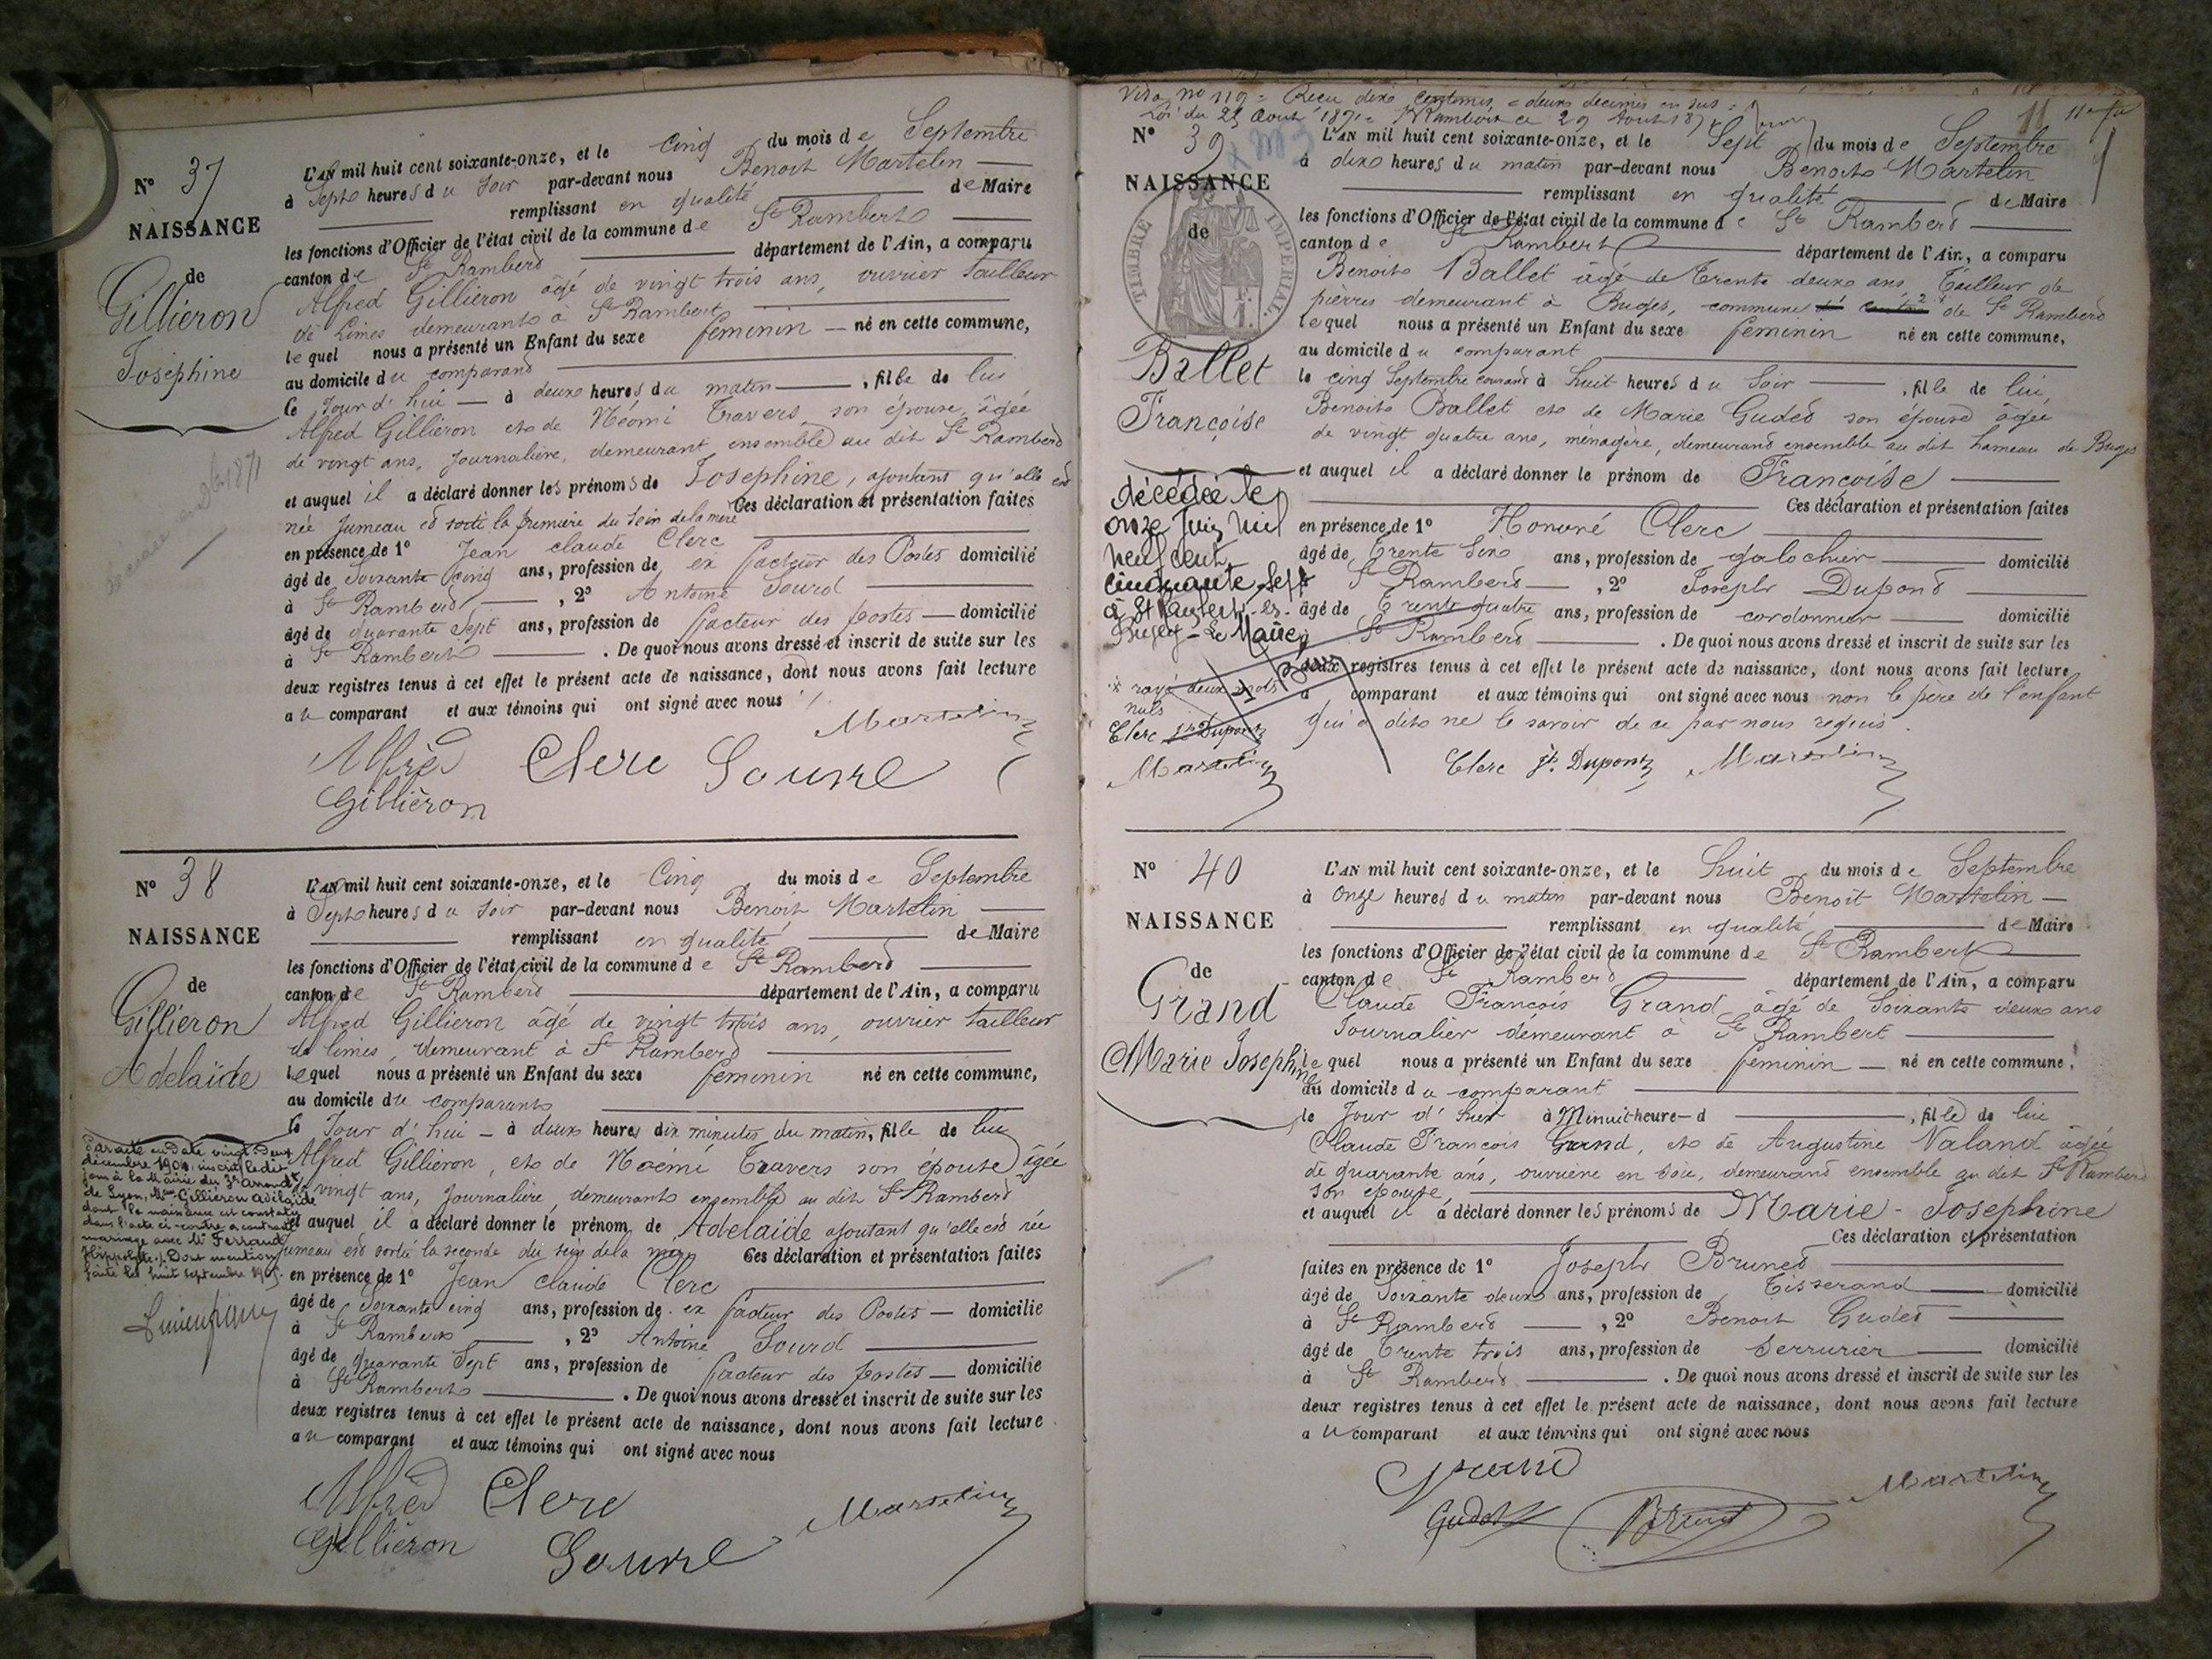 N° 37
NAISSANCE
de
Gilliéron
Joséphine
L'AN mil huit cent soixante-onze, et le Cinq du mois de Septembre
à Sept heures du soir par-devant nous Benoit Martelin
remplissant en qualité de Maire
les fonctions d'Officier de l'état civil de la commune de St Rambert
canton de St Rambert département de l'Ain, a comparu
Alfred Gilliéron âgé de vingt trois ans, ouvrier tailleur
de limes demeurant à St Rambert
lequel nous a présenté un Enfant du sexe féminin né en cette commune,
au domicile du comparant
le jour d'hui à deux heures du matin, fille de lui
Alfred Gilliéron et de Néomi Travers son épouse, âgée
de vingt ans, journalière, demeurant ensemble au dit St Rambert
et auquel il a déclaré donner les prénoms de Josephine, ajoutant qu'elle est
née jumeau et sortie la première du sein de la mère Ces déclaration et présentation faites
en présence de 1° Jean claude Clerc
âgé de Soixante cinq ans, profession de ex facteur des Postes domicilié
à St Rambert, 2° Antoine Sourd
âgé de quarante sept ans, profession de facteur des postes domicilié
à St Rambert. De quoi nous avons dressé et inscrit de suite sur les
deux registres tenus à cet effet le présent acte de naissance, dont nous avons fait lecture
au comparant et aux témoins qui ont signé avec nous
Martelin
Alfred Clerc
Gilliéron
N° 38
NAISSANCE
de
Gilliéron
Adelaide
Par acte en date vingt-deux
décembre 1904, inscrit ledit
jour à la Mairie du 3e arrondt
de Lyon, Gilliéron Adélaïde
dont la naissance est constatée
dans l'acte ci-contre a contracté
mariage avec Mr Ferrand
Hippolyte. Dont mention
faite le huit septembre
L'AN mil huit cent soixante-onze, et le Cinq du mois de Septembre
à Sept heures du soir par-devant nous Benoit Martelin
remplissant en qualité de Maire
les fonctions d'Officier de l'état civil de la commune de St Rambert
canton de St Rambert département de l'Ain, a comparu
Alfred Gilliéron âgé de vingt trois ans, ouvrier tailleur
de limes, demeurant à St Rambert
lequel nous a présenté un Enfant du sexe féminin né en cette commune,
au domicile du comparant
le Jour d'hui à deux heures dix minutes du matin, fille de lui
Alfred Gilliéron, et de Noémi Travers son épouse âgée
de vingt ans, journalière demeurant ensemble au dit St Rambert
et auquel il a déclaré donner le prénom de Adelaide ajoutant qu'elle est née
jumeau est sortie la seconde du sein de la mère Ces déclaration et présentation faites
en présence de 1° Jean claude Clerc
âgé de Soixante cinq ans, profession de ex facteur des Postes domicilié
à St Rambert, 2° Antoine Sourd
âgé de quarante Sept ans, profession de facteur des postes domicilié
à St Rambert. De quoi nous avons dressé et inscrit de suite sur les
deux registres tenus à cet effet le présent acte de naissance, dont nous avons fait lecture
au comparant et aux témoins qui ont signé avec nous
Alfred Clerc
Gilliéron Martelin
Visa no 119 = Reçu dix centimes = deux decimes en sus =
Loi du 23 Août 1871 = St Rambert ce 29 Août 1871
11
N° 39
NAISSANCE
TIMBRE IMPERIAL
de
Ballet
Françoise
décédée le
onze Juin mil
neuf cent
cinquante sept
à St Rambert-en-
Bugey - Le Maire
rayé deux mots
nuls
Clerc Jh Dupont
Martelin
L'AN mil huit cent soixante-onze, et le Sept du mois de Septembre
à dix heures du matin par-devant nous Benoit Martelin
remplissant en qualité de Maire
les fonctions d'Officier de l'état civil de la commune de St Rambert
canton de St Rambert département de l'Ain, a comparu
Benoit Ballet âgé de Trente deux ans, Tailleur de
pierres demeurant à Buges, commune de St Rambert
lequel nous a présenté un Enfant du sexe féminin né en cette commune,
au domicile du comparant
le cinq Septembre courant à huit heures du Soir, fille de lui
Benoit Ballet et de Marie Gudet son épouse âgée
de vingt quatre ans, ménagère, demeurant ensemble au dit hameau de Buges
et auquel il a déclaré donner le prénom de Françoise
Ces déclaration et présentation faites
en présence de 1° Honoré Clerc
âgé de Trente Six ans, profession de galochier domicilié
St Rambert, 2° Joseph Dupond
âgé de Trente quatre ans, profession de cordonnier domicilié
St Rambert. De quoi nous avons dressé et inscrit de suite sur les
deux registres tenus à cet effet le présent acte de naissance, dont nous avons fait lecture
a comparant et aux témoins qui ont signé avec nous non le père de l'enfant
qui a dit ne le savoir de ce par nous requis.
Clerc Jh. Dupont Martelin
N° 40
NAISSANCE
de
Grand
Marie Josephine
L'AN mil huit cent soixante-onze, et le huit du mois de Septembre
à Onze heures du matin par-devant nous Benoit Martelin
remplissant en qualité de Maire
les fonctions d'Officier de l'état civil de la commune de St Rambert
canton de St Rambert département de l'Ain, a comparu
Claude François Grand âgé de Soixante deux ans
Journalier demeurant à St Rambert
lequel nous a présenté un Enfant du sexe féminin né en cette commune,
au domicile du comparant
le Jour d'hier à Minuit heure d, fille de lui
Claude François Grand, et de Augustine Naland âgée
de quarante ans, ouvrière en soie, demeurant ensemble au dit St Rambert
son épouse,
et auquel il a déclaré donner les prénoms de Marie-Josephine
Ces déclaration et présentation
faites en présence de 1° Joseph Brunet
âgé de Soixante deux ans, profession de Tisserand domicilié
à St Rambert, 2° Benoit Gudet
âgé de Trente trois ans, profession de Serrurier domicilié
à St Rambert. De quoi nous avons dressé et inscrit de suite sur les
deux registres tenus à cet effet le présent acte de naissance, dont nous avons fait lecture
au comparant et aux témoins qui ont signé avec nous
Grand
Gudet Brunet Martelin